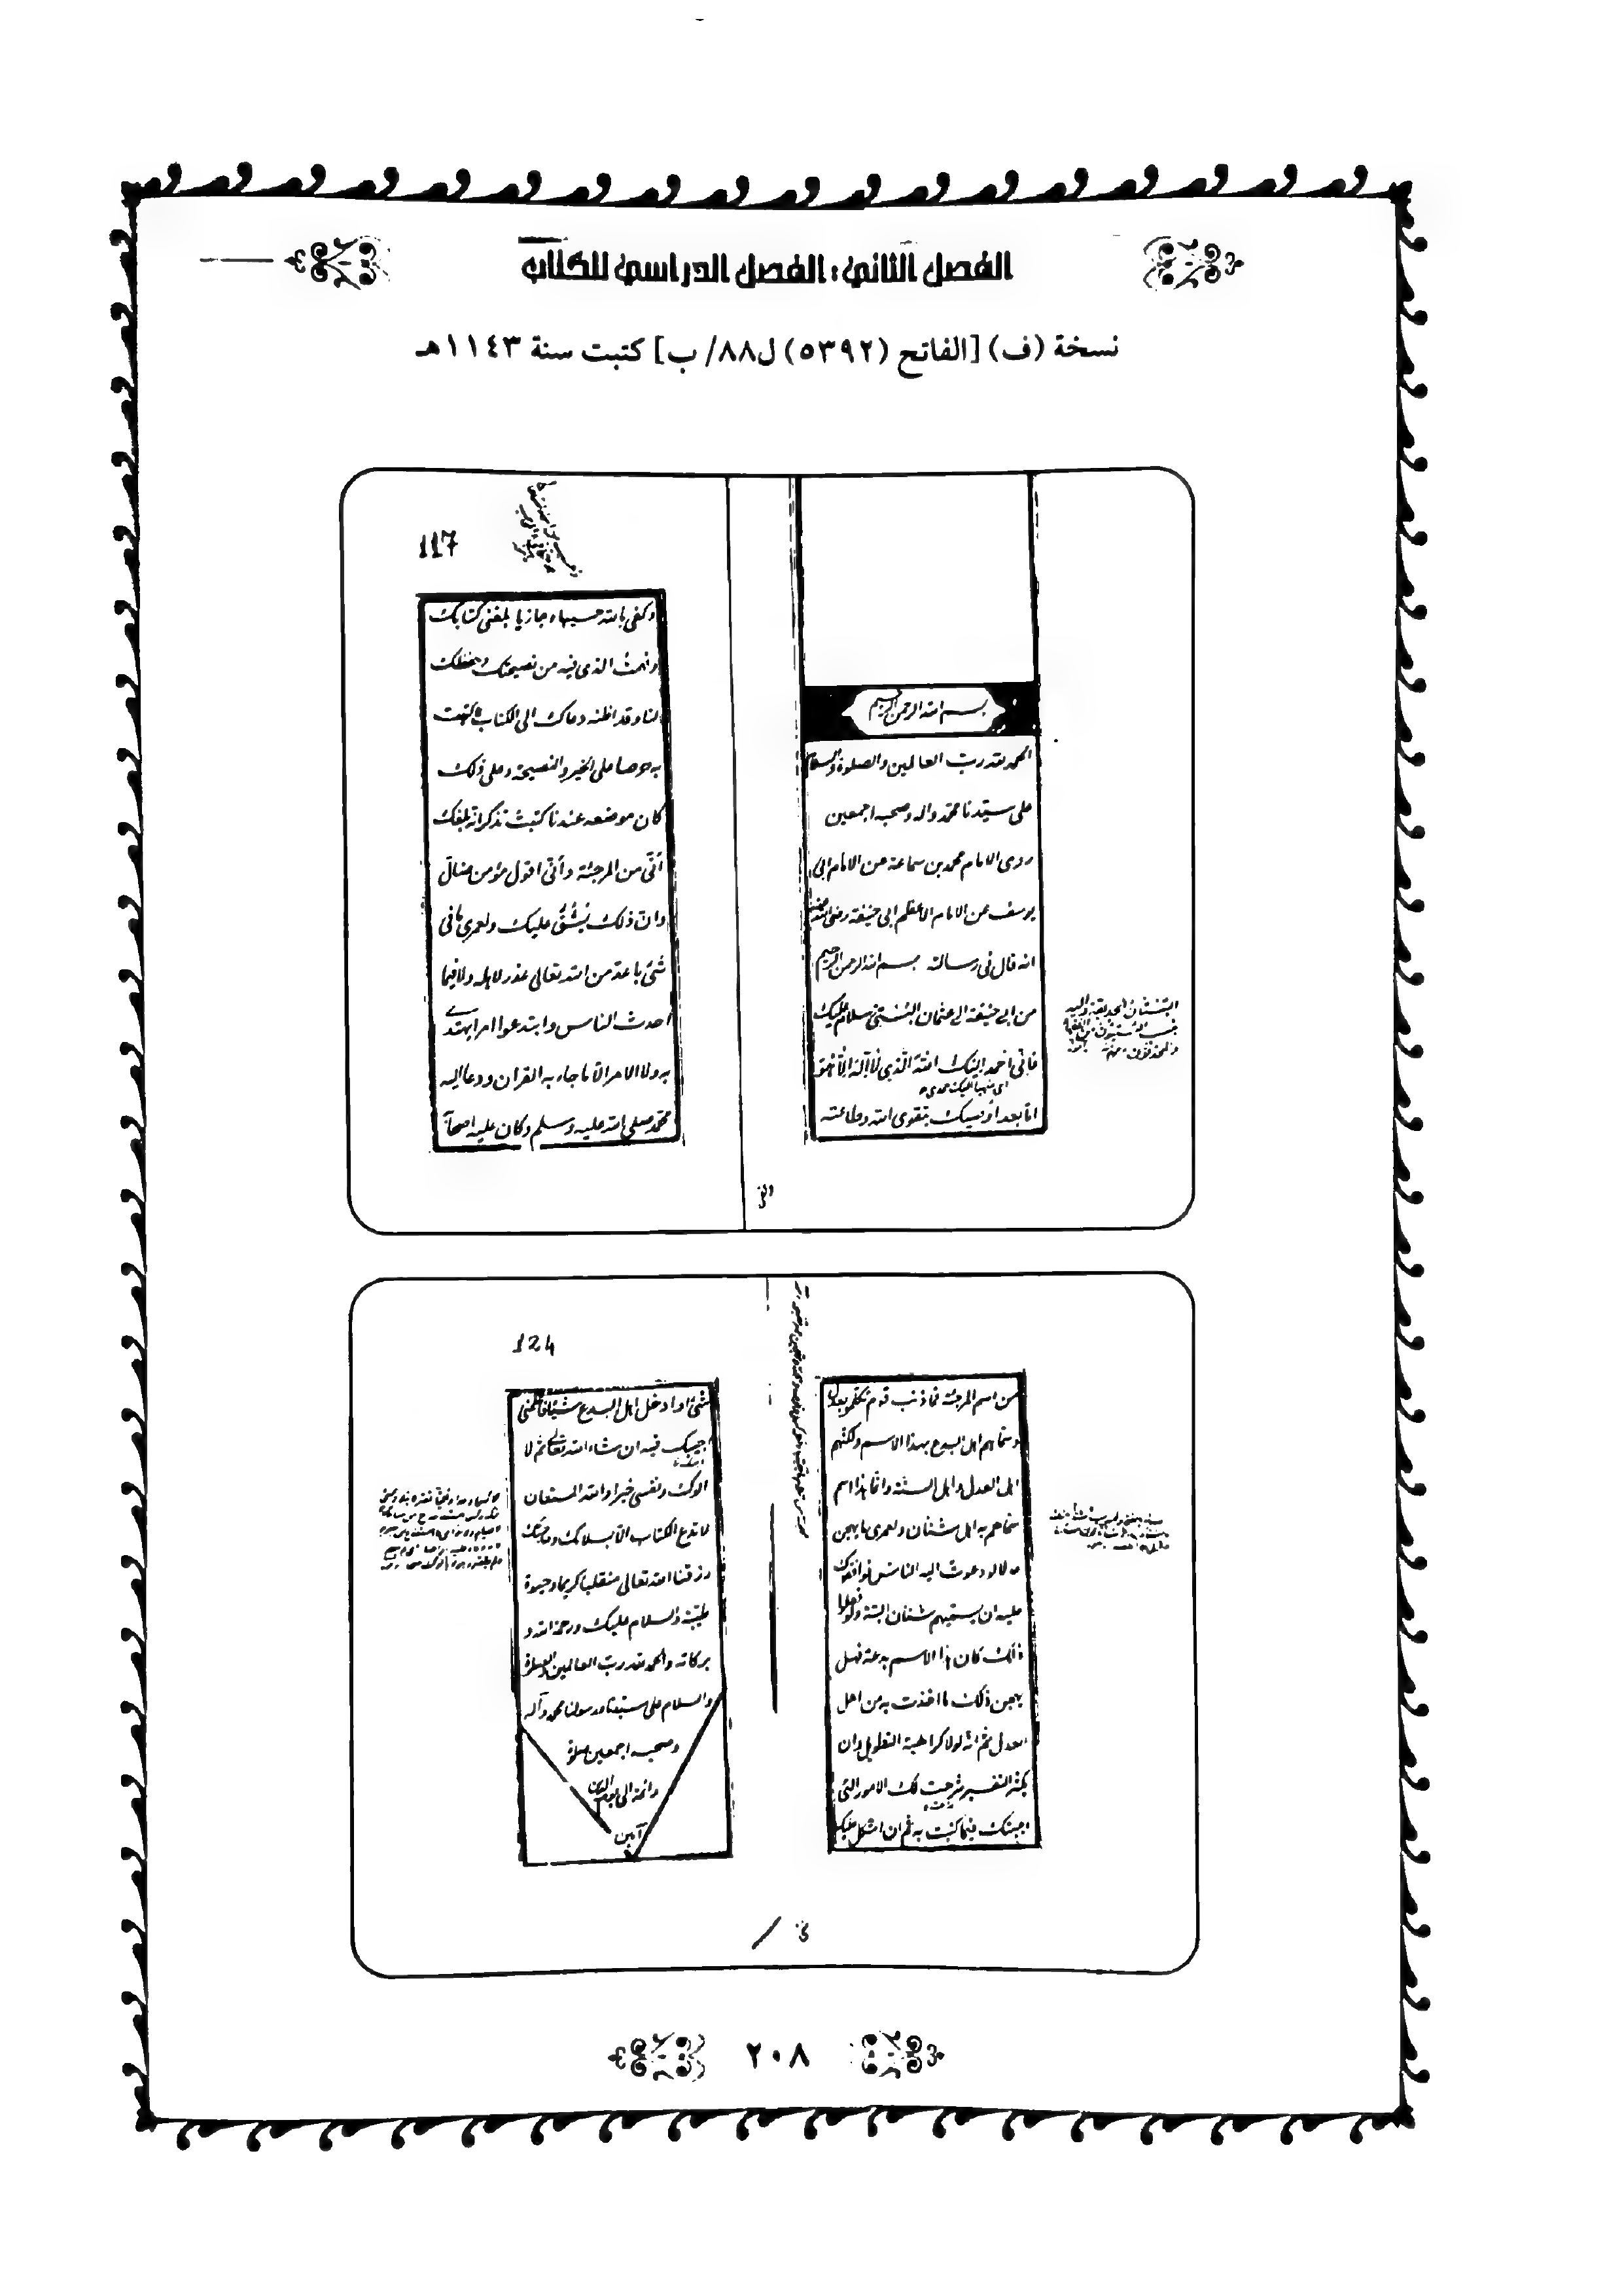 الفصل الثاني: الفصل الدراسي للكتاب
نسخة (ف) [الفاتح (٥٣٩٢) ل٨٨/ ب] كتبت سنة ١١٤٣هـ
بسم الله الرحمن الرحيم
الحمد لله رب العالمين والصلوة والسلام
على سيدنا محمد واله وصحبه اجمعين
روى الامام محمد بن سماعة عن الامام ابى
يوسف عن الامام الاعظم ابى حنيفة رضى الله عنه
انه قال فى رسالته بسم الله الرحمن الرحيم
من ابى حنيفة الى عثمان البتى سلام عليك
فانى احمد اليك الله الذي لا اله الا هو
اما بعد اوصيك بتقوى الله وطاعته
وكفى بالله حسيبا وجازيا بلغنى كتابك
وفهمت الذى فيه من نصيحتك وحفظك
لنا وقد اظنه دعاك الى الكتاب بما كتبت
به حرصا على الخير والنصيحة وعلى ذلك
كان موضعه عندنا كتبت تذكر انه بلغك
أنّى من المرجئة وأنّى اقول مؤمن ضالّ
وانّ ذلك يَشُقُّ عليك ولعمرى ما فى
شئ باعد من الله تعالى عذر لاهله ولا فيما
احدث الناس وابتدعوا امر يهتدى
به ولا الامر الا ما جاء به القران ودعا اليه
محمد صلى الله عليه وسلم وكان عليه اصحابه
117
من اسم المرجئة فما ذنب قوم تكلموا بعدل
وسماهم اهل البدع بهذا الاسم ولكنهم
اهل العدل واهل السنة وانما هذا اسم
سماهم به اهل شنآن ولعمرى ما يهجن
عدلا لو دعوت اليه الناس فوافقوك
عليه ان يسميهم شنآن البتة ولو فعلوا
ذلك كان هذا الاسم بدعة فهل
يهجن ذلك ما اخذت به من اهل
العدل ثم انه لولا كراهية التطويل وان
يكثر التفسير شرحت لك الامور التى
اجبتك فيما كتبت به ثم ان اشكل عليك
124
شئ او ادخل اهل البدع شيئا فاعلمنى
اجيبك فيه ان شاء الله تعالى ثم لا
الوك ونفسى خيرا والله المستعان
لا تدع الكتاب الىّ بسلامك وحاجتك
رزقنا الله تعالى منقلبا كريما وحيوة
طيبة والسلام عليك ورحمة الله و
بركاته والحمد لله رب العالمين والصلوة
والسلام على سيدنا ورسولنا محمد وآله
وصحبه اجمعين صلوة
دائمة الى يوم الدين
آمين
٢٠٨